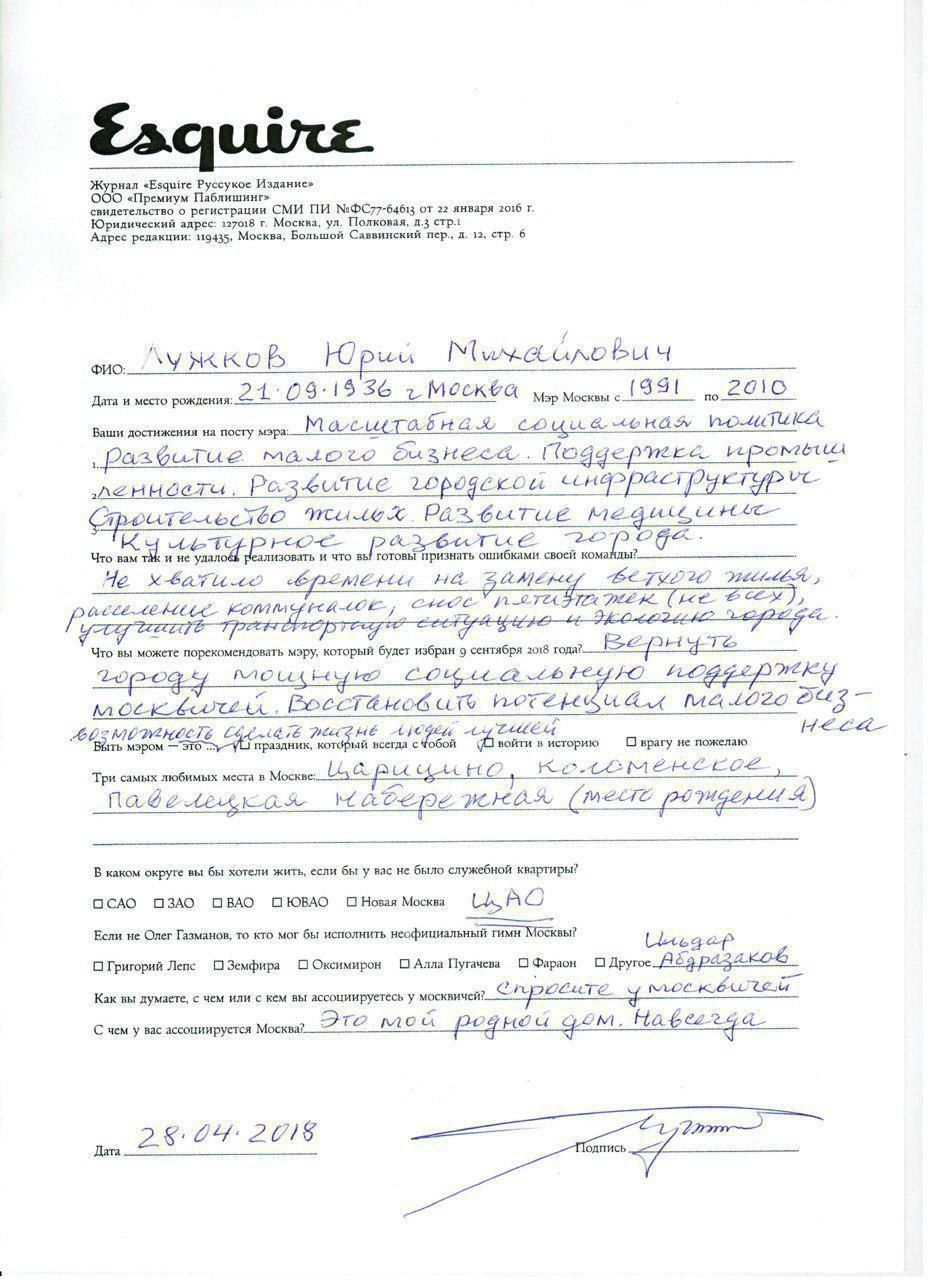 Esquire
Журнал «Esquire Руссукое Издание»
ООО «Премиум Паблишинг»
свидетельство о регистрации СМИ ПИ №ФС77-64613 от 22 января 2016 г.
Юридический адрес: 127018 г. Москва, ул. Полковая, д.3 стр.1
Адрес редакции: 119435, Москва, Большой Саввинский пер., д. 12, стр. 6
ФИО: Лужков Юрий Михайлович
Дата и место рождения: 21.09.1936 г Москва Мэр Москвы с 1991 по 2010
Ваши достижения на посту мэра: Масштабная социальная политика
1. Развитие малого бизнеса. Поддержка промыш
2. ленности. Развитие городской инфраструктуры
3. Строительство жилых. Развитие медицины
Культурное развитие города.
Что вам так и не удалось реализовать и что вы готовы признать ошибками своей команды?
Не хватило времени на замену ветхого жилья,
расселение коммуналок, снос пятиэтажек (не всех),
улучшить транспортную ситуацию и экологию города.
Что вы можете порекомендовать мэру, который будет избран 9 сентября 2018 года? Вернуть
городу мощную социальную поддержку
москвичей. Восстановить потенциал малого биз-
неса
возможность сделать жизнь людей лучшей
Быть мэром – это ... ☐ праздник, который всегда с тобой ☐ войти в историю ☐ врагу не пожелаю
Три самых любимых места в Москве: Царицино, Коломенское,
Павелецкая набережная (место рождения)
В каком округе вы бы хотели жить, если бы у вас не было служебной квартиры?
☐ САО ☐ ЗАО ☐ ВАО ☐ ЮВАО ☐ Новая Москва ЦАО
Если не Олег Газманов, то кто мог бы исполнить неофициальный гимн Москвы?
Ильдар
☐ Григорий Лепс ☐ Земфира ☐ Оксимирон ☐ Алла Пугачева ☐ Фараон ☐ Другое Абдразаков
Как вы думаете, с чем или с кем вы ассоциируетесь у москвичей? Спросите у москвичей
С чем у вас ассоциируется Москва? Это мой родной дом. Навсегда
Дата 28.04.2018 Подпись